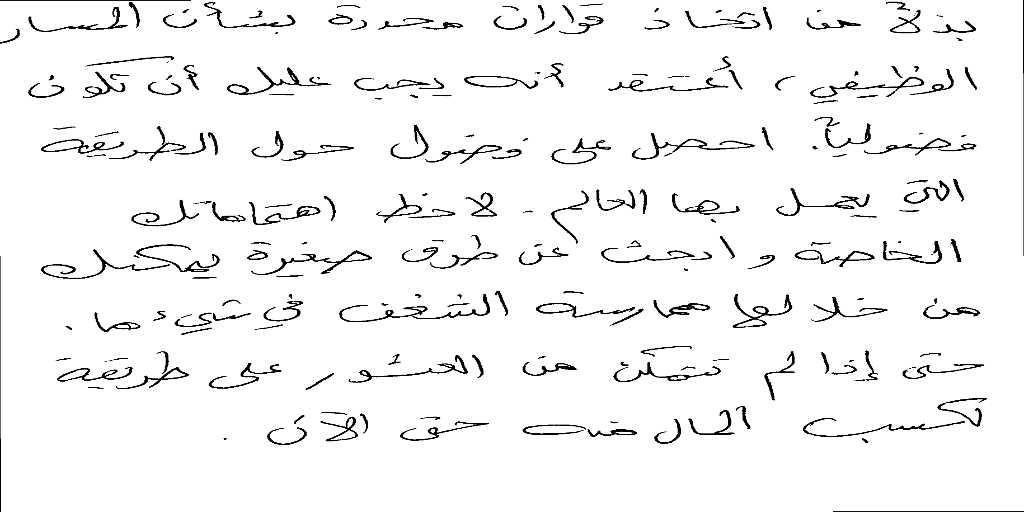 بدلاً من اتخاذ قرارات محددة بشأن المسار
الوظيفي، أعتقد أنه يجب عليك أن تكون
فضولياً. احصل على فضول حول الطريقة
التي يعمل بها العالم. لاحظ اهتماماتك
الخاصة وابحث عن طرق صغيرة يمكنك
من خلالها ممارسة الشغف في شيء ما.
حتى إذا لم تتمكن من العثور على طريقة
لكسب المال منه حتى الآن.